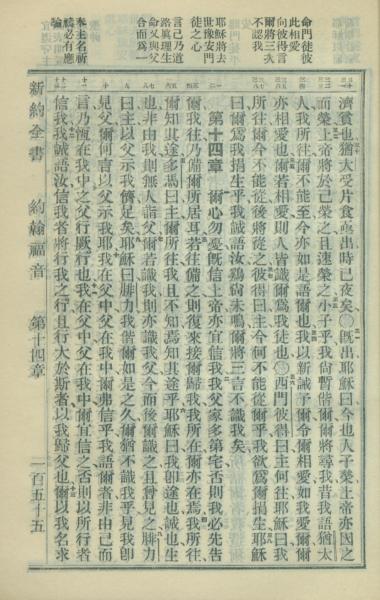 命門徒彼
此相愛
向彼得言
爾將三次
不認我
耶穌將去
世豫安門
徒之心
言己乃道
路眞理生
命父與父
合而爲一
奉主名祈
禱必有應
驗
濟貧也猶大受片食卽出時已夜矣○旣出耶穌曰今也人子榮上帝亦因之
而榮上帝將於己榮之且速榮之小子乎我尙暫偕爾爾將尋我昔我語猶太
人我所往爾不能至今亦如是語爾也我以新誡予爾令爾相愛如我愛爾爾
亦相愛也爾若相愛則人皆識爾爲我徒也○西門彼得曰主何往耶穌曰我
所往爾今不能從後將從之彼得曰主今何不能從爾乎我欲爲爾捐生耶穌
曰爾爲我捐生乎我誠語汝鷄尙未鳴爾將三言不識我矣
第十四章 爾心勿憂旣信上帝亦宜信我我父家多第宅否則我必先告
爾我往乃備爾所居耳若往備之則復來接爾歸我我所在爾亦在焉我所往
爾知其途多馬曰主爾所往我且不知焉知其途乎耶穌曰我卽途也誠也生
也非由我則無人詣父爾若識我則亦識我父今而後爾識之且曾見之腓力
曰主以父示我儕足矣耶穌曰腓力我偕爾如是之久爾猶不識我乎見我卽
見父爾何言以父示我耶我在父中父在我中爾弗信乎我語爾者非由己而
言乃恆在我中之父行厥行也我在父中父在我中爾宜信之否則以所行者
信我我誠語汝信我者將行我之行且行大於斯者以我歸父也爾以我名求
新約全書 約翰福音 第十四章 一百五十五